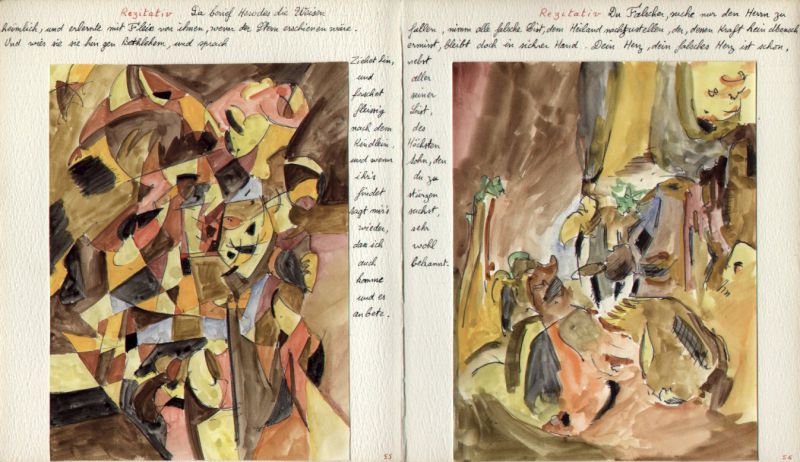 Rezitativ. Da berief Herodes die Weisen
heimlich, und erlernte mit Fleiss von ihnen, wann der Stern erschienen wäre.
Und wies sie hen gen Bethlehem, und sprach
Ziehet hin,
und
forschet
fleissig
nach dem
Kindlein,
und wenn
ihr's
findet
sagt mir's
wieder,
dass ich
auch
komme
und es
anbete.
55
Rezitativ Du Falscher, suche nur den Herrn zu
fällen, nimm alle falsche List, dem Heiland nachzustellen, der, dessen Kraft kein Mensch
ermisst, bleibt doch in sichrer Hand. Dein Herz, dein falsches Herz ist schon,
nebst
aller
seiner
List,
des
Höchsten
Sohn, den
du zu
stürzen
suchst,
sehr
wohl
bekannt.
56